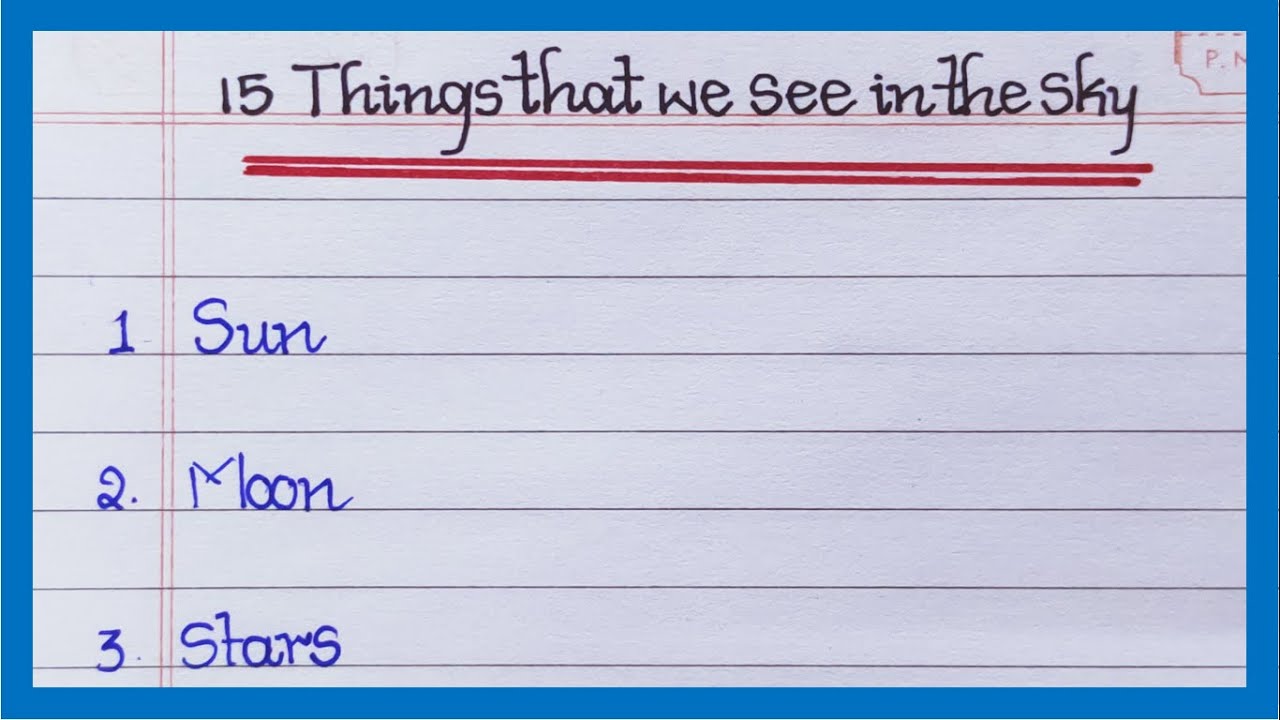 15 Things that we see in the sky
P.N
1 Sun
2. Moon
3. Stars